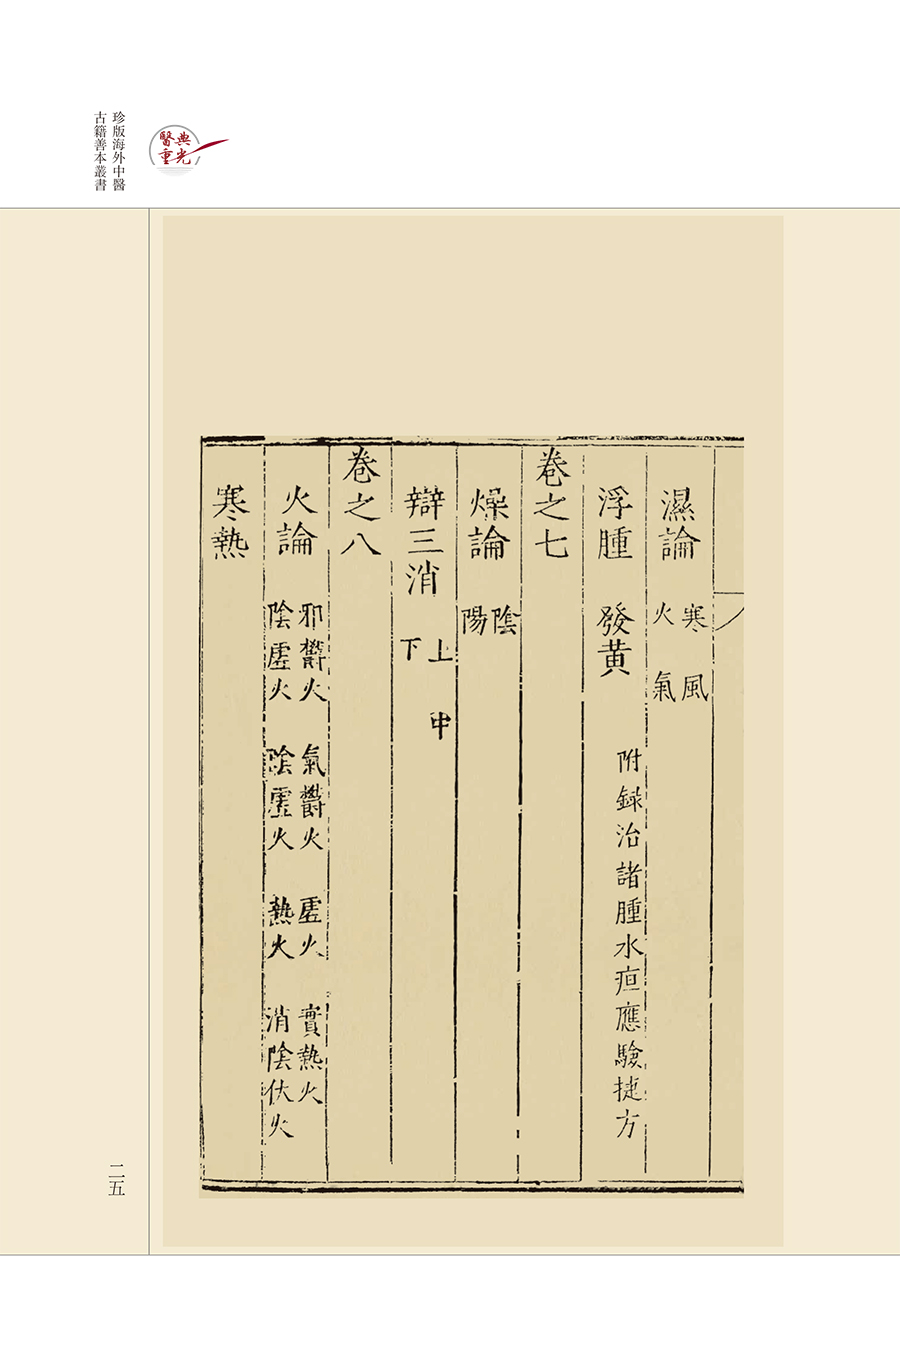 珍版海外中醫
古籍善本叢書
醫典
重光
濕論 寒 風
火 氣
浮腫 發黄 附録治諸腫水疸應驗捷方
卷之七
燥論 陰
陽
辯三消 上 中
下
卷之八
火論 邪欝火 氣欝火 虛火 實熱火
陰虛火 陰虛火 熱火 消陰伏火
寒熱
二五